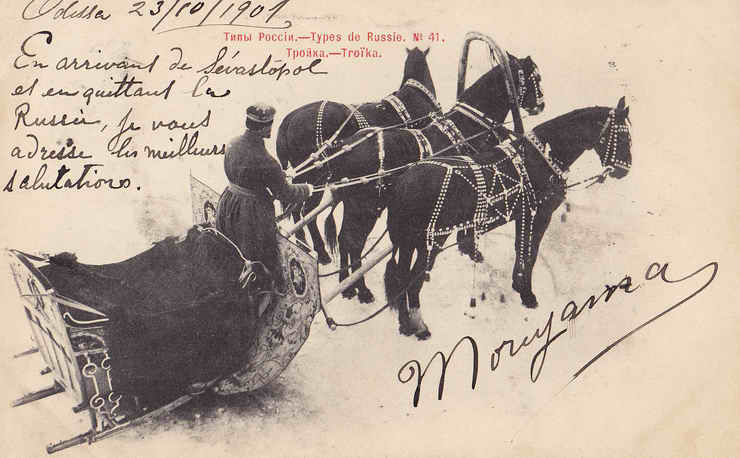 Odessa 23/10/1901
Типы Россіи.—Types de Russie. № 41.
Тройка.—Troïka.
En arrivant de Sévastôpol
et en quittant la
Russie, je vous
adresse les meilleurs
salutations.
Mouyama